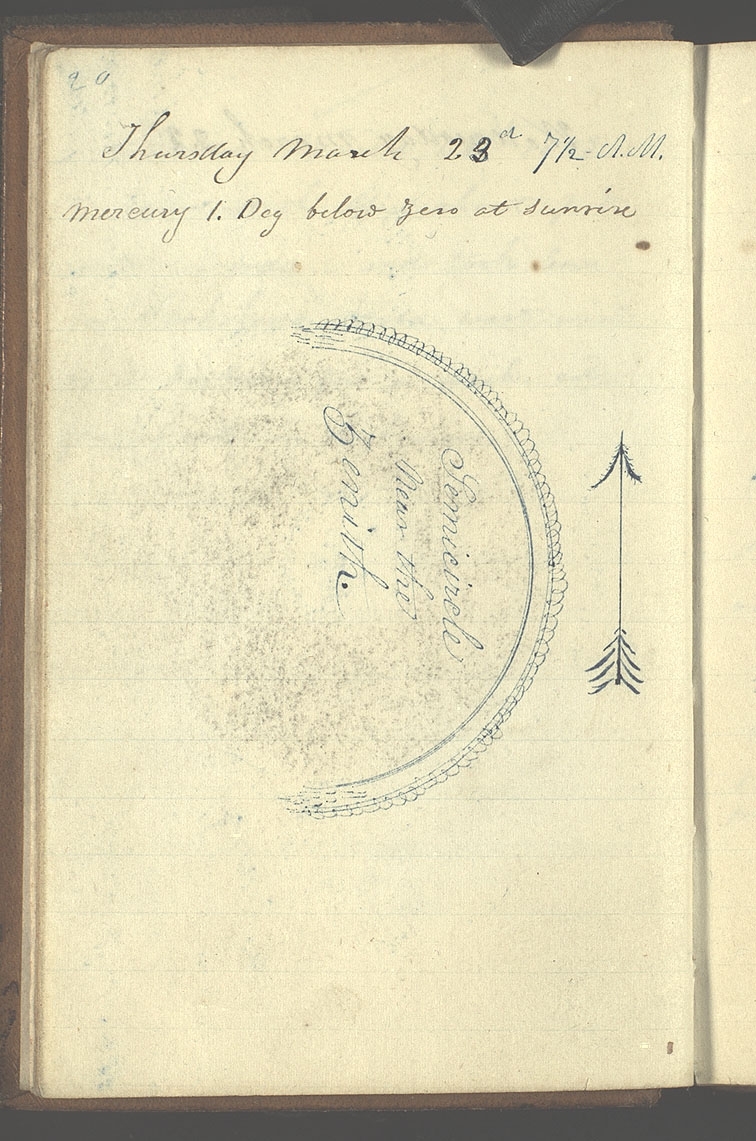 20
Thursday March 23d 7½ A.M.
Mercury 1. Deg below Zero at Sunrise
Semicircle
near the
Zenith.